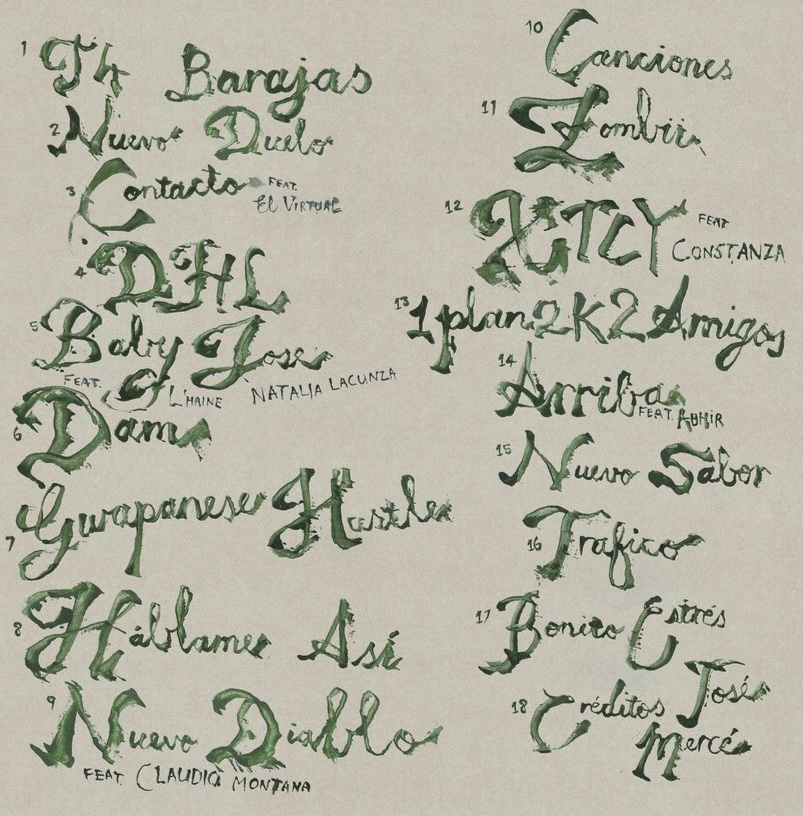 1 T4 Barajas
2 Nuevo Duelo
3 Contacto FEAT. El VIRTUAL
4 DHL
5 Baby Jose
FEAT. L'HAINE NATALIA LACUNZA
6 Dama
7 Gwapanese Hustle
8 Háblame Así
9 Nuevo Diablo
FEAT. CLAUDIO MONTANA
10 Canciones
11 Zombii
12 XTCY FEAT CONSTANZA
13 1plan2K2Amigos
14 Arriba FEAT. ABHIR
15 Nuevo Sabor
16 Trafico
17 Bonito Estrés
18 Créditos José
Mercé